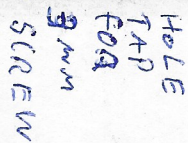 HOLE
TAP
FOR
3 MM
SCREW